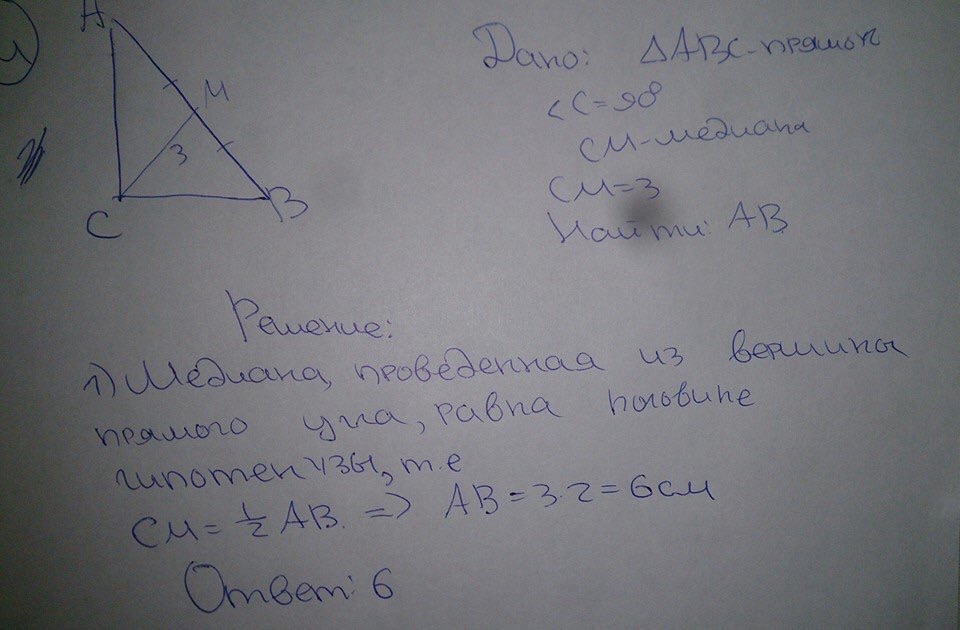 4)
A
M
3
C
B
Дано: △ABC-прямоуг
<C=90°
CM-медиана
CM=3
Найти: AB
Решение:
1) Медиана, проведенная из вершины
прямого угла, равна половине
гипотенузы, т.е
CM = 1/2 AB. => AB = 3·2 = 6см
Ответ: 6